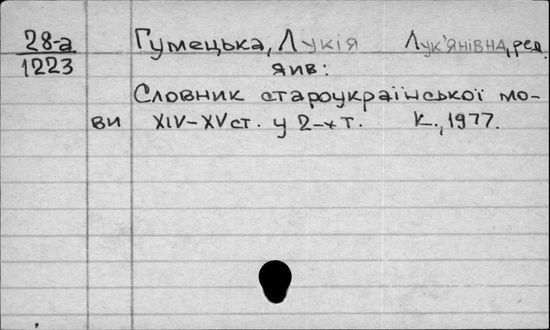 28-а Гумецька, Лукія Лук'янівна, ред.
1223 див:
Словник староукраїнської мо-
ви XIV-XV ст. у 2-х т. К., 1977.